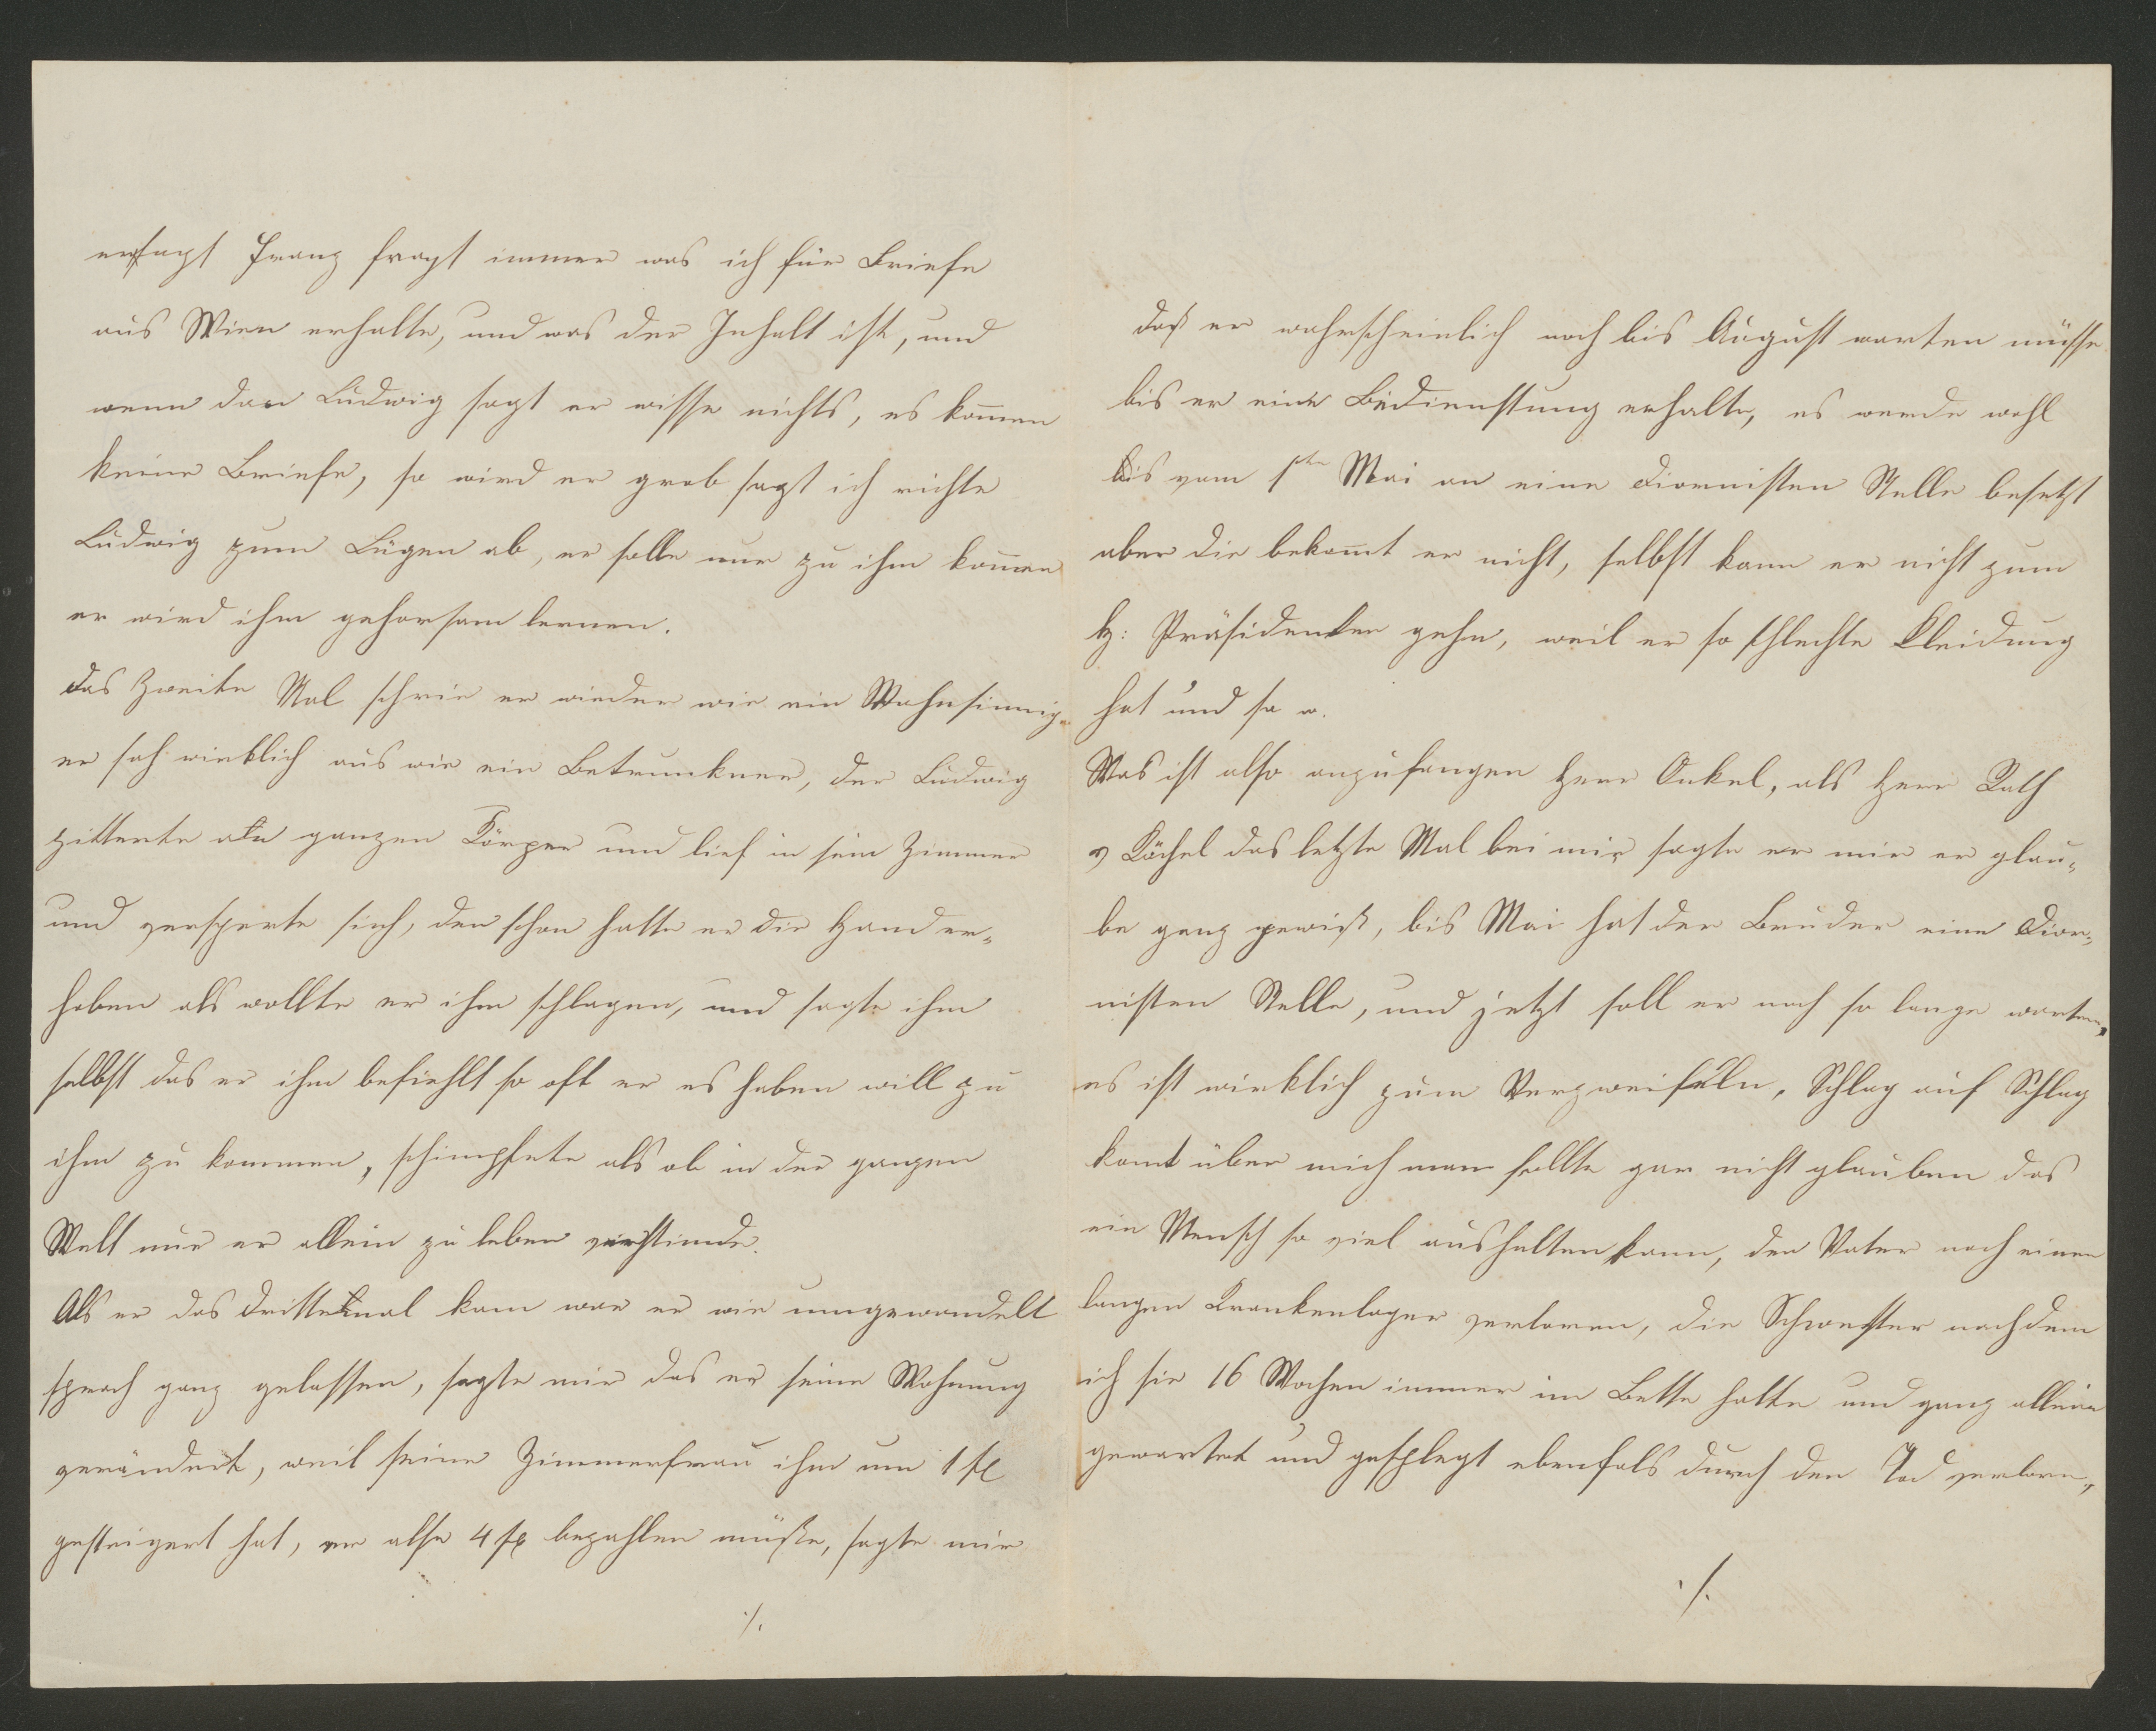 ersagt Franz fragt immer was ich für Briefe
aus Wien erhalte, und was der Inhalt ist, und
wenn dan Ludwig sagt er wisse nichts, es kom̅en
keine Briefe, so wird er grob sagt ich richte
Ludwig zum Lügen ab, er solle nur zu ihm kom̅en
er wird ihm gehorsam lernen.
Das Zweite Mal schrie er wieder wie ein Wahnsinnig
er sah wirklich aus wie ein Betrunkner, der Ludwig
zitterte am ganzen Körper und lief in sein Zimmer
und versperte sich, den schon hatte er die Hand er-
hoben als wollte er ihm schlagen, und sagte ihm
selbst das er ihm befiehlt so oft er es haben will zu
ihm zu kommen, schimpfete als ob in der ganzen
Welt nur er allein zu leben verstünde.
Als er das drittemal kam war er wie umgewandelt
sprach ganz gelassen, sagte mir das er seine Wohnung
verändert, weil seine Zimmerfrau ihm um 1 fl
gesteigert hat, er also 4 fl bezahlen müße, sagte mir
./.
daß er wahrscheinlich noch bis August warten müsse
bis er eine Bedienstung erhalte, es werde wohl
bis vom 1ten Mai an eine Diornisten Stelle besetzt
aber die bekom̅t er nicht, selbst kann er nicht zum
H: Präsidenten gehn, weil er so schlechte Kleidung
hat und so w.
Was ist also anzufangen Herr Onkel, als Herr Rath
v Köchel das letzte Mal bei mir sagte er mir er glau-
be ganz gewiß, bis Mai hat der Bruder eine Dior-
nisten Stelle, und jetzt soll er noch so lange warten,
es ist wirklich zum Verzweifeln, Schlag auf Schlag
komt über mich man sollte gar nicht glauben das
ein Mensch so viel aushalten kann, den Vater nach einen
langen Krankenlager verloren, die Schwester nachdem
ich sie 16 Wochen immer im Bette hatte und ganz allein
gewartet und gepflegt ebenfals durch den Tod verlorn,
./.